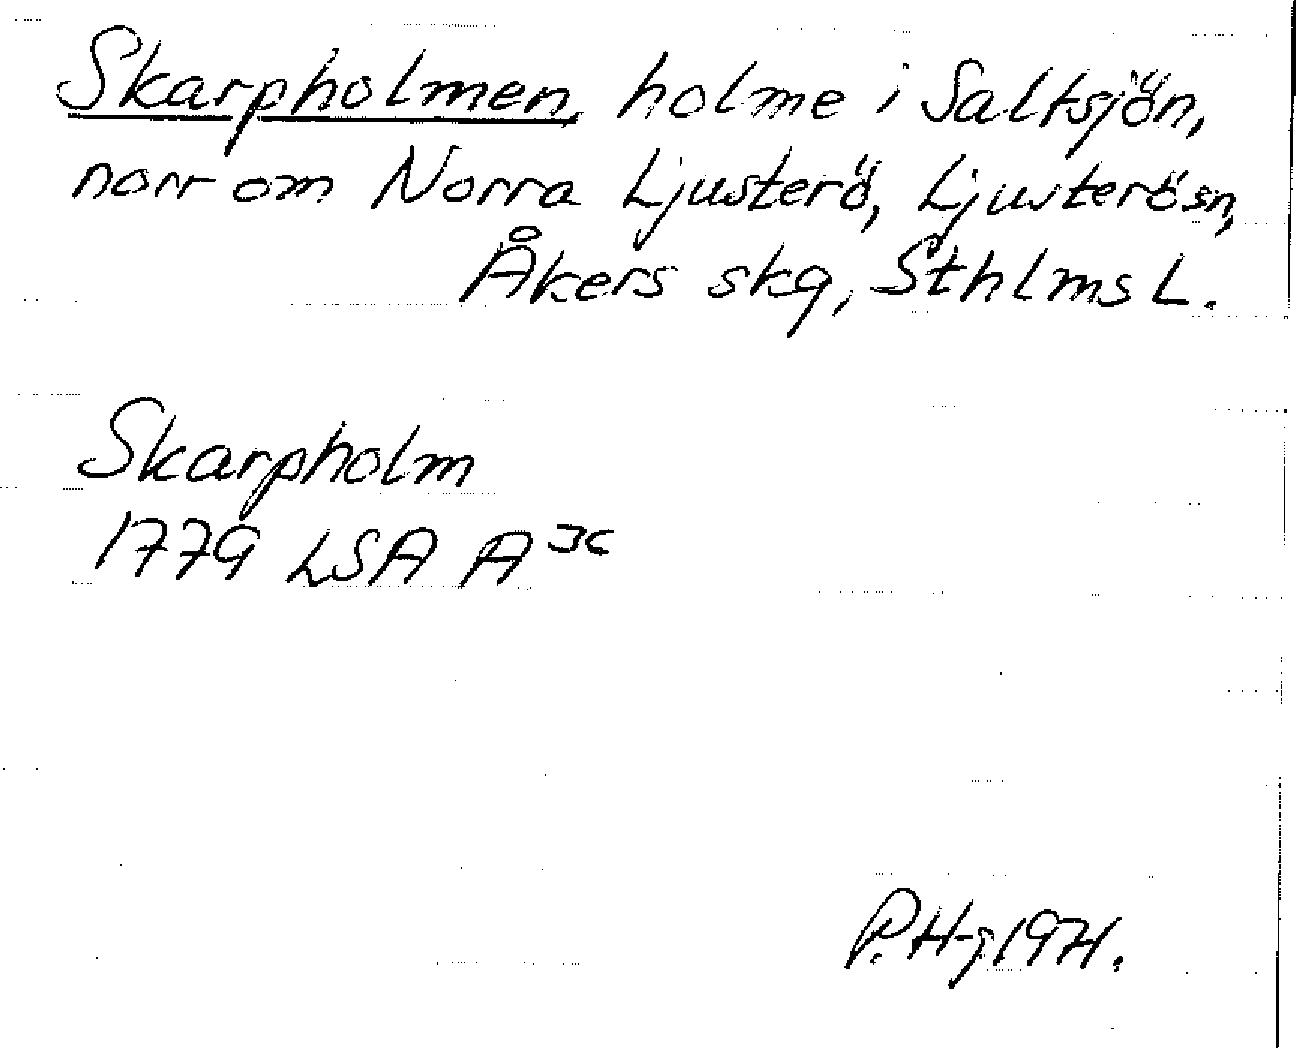 Skarpholmen, holme i Saltsjön,
norr om Norra Ljusterö, Ljusterö sn,
Åkers skg, Sthlms L.
Skarpholm
1779 LSA A
P.H-g 1971.